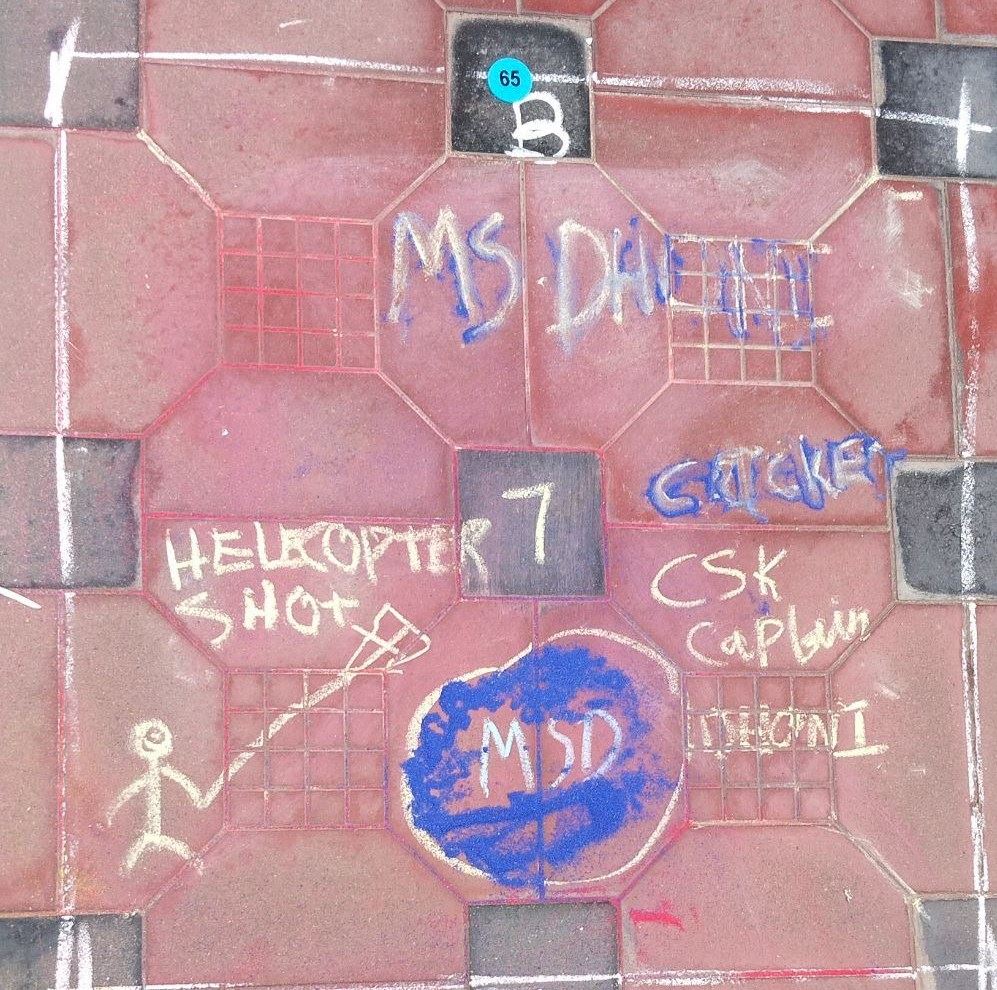 65
B
MS DHONI
CRICKET
7
HELICOPTER
SHOT
CSK
Captain
DHONI
MSD